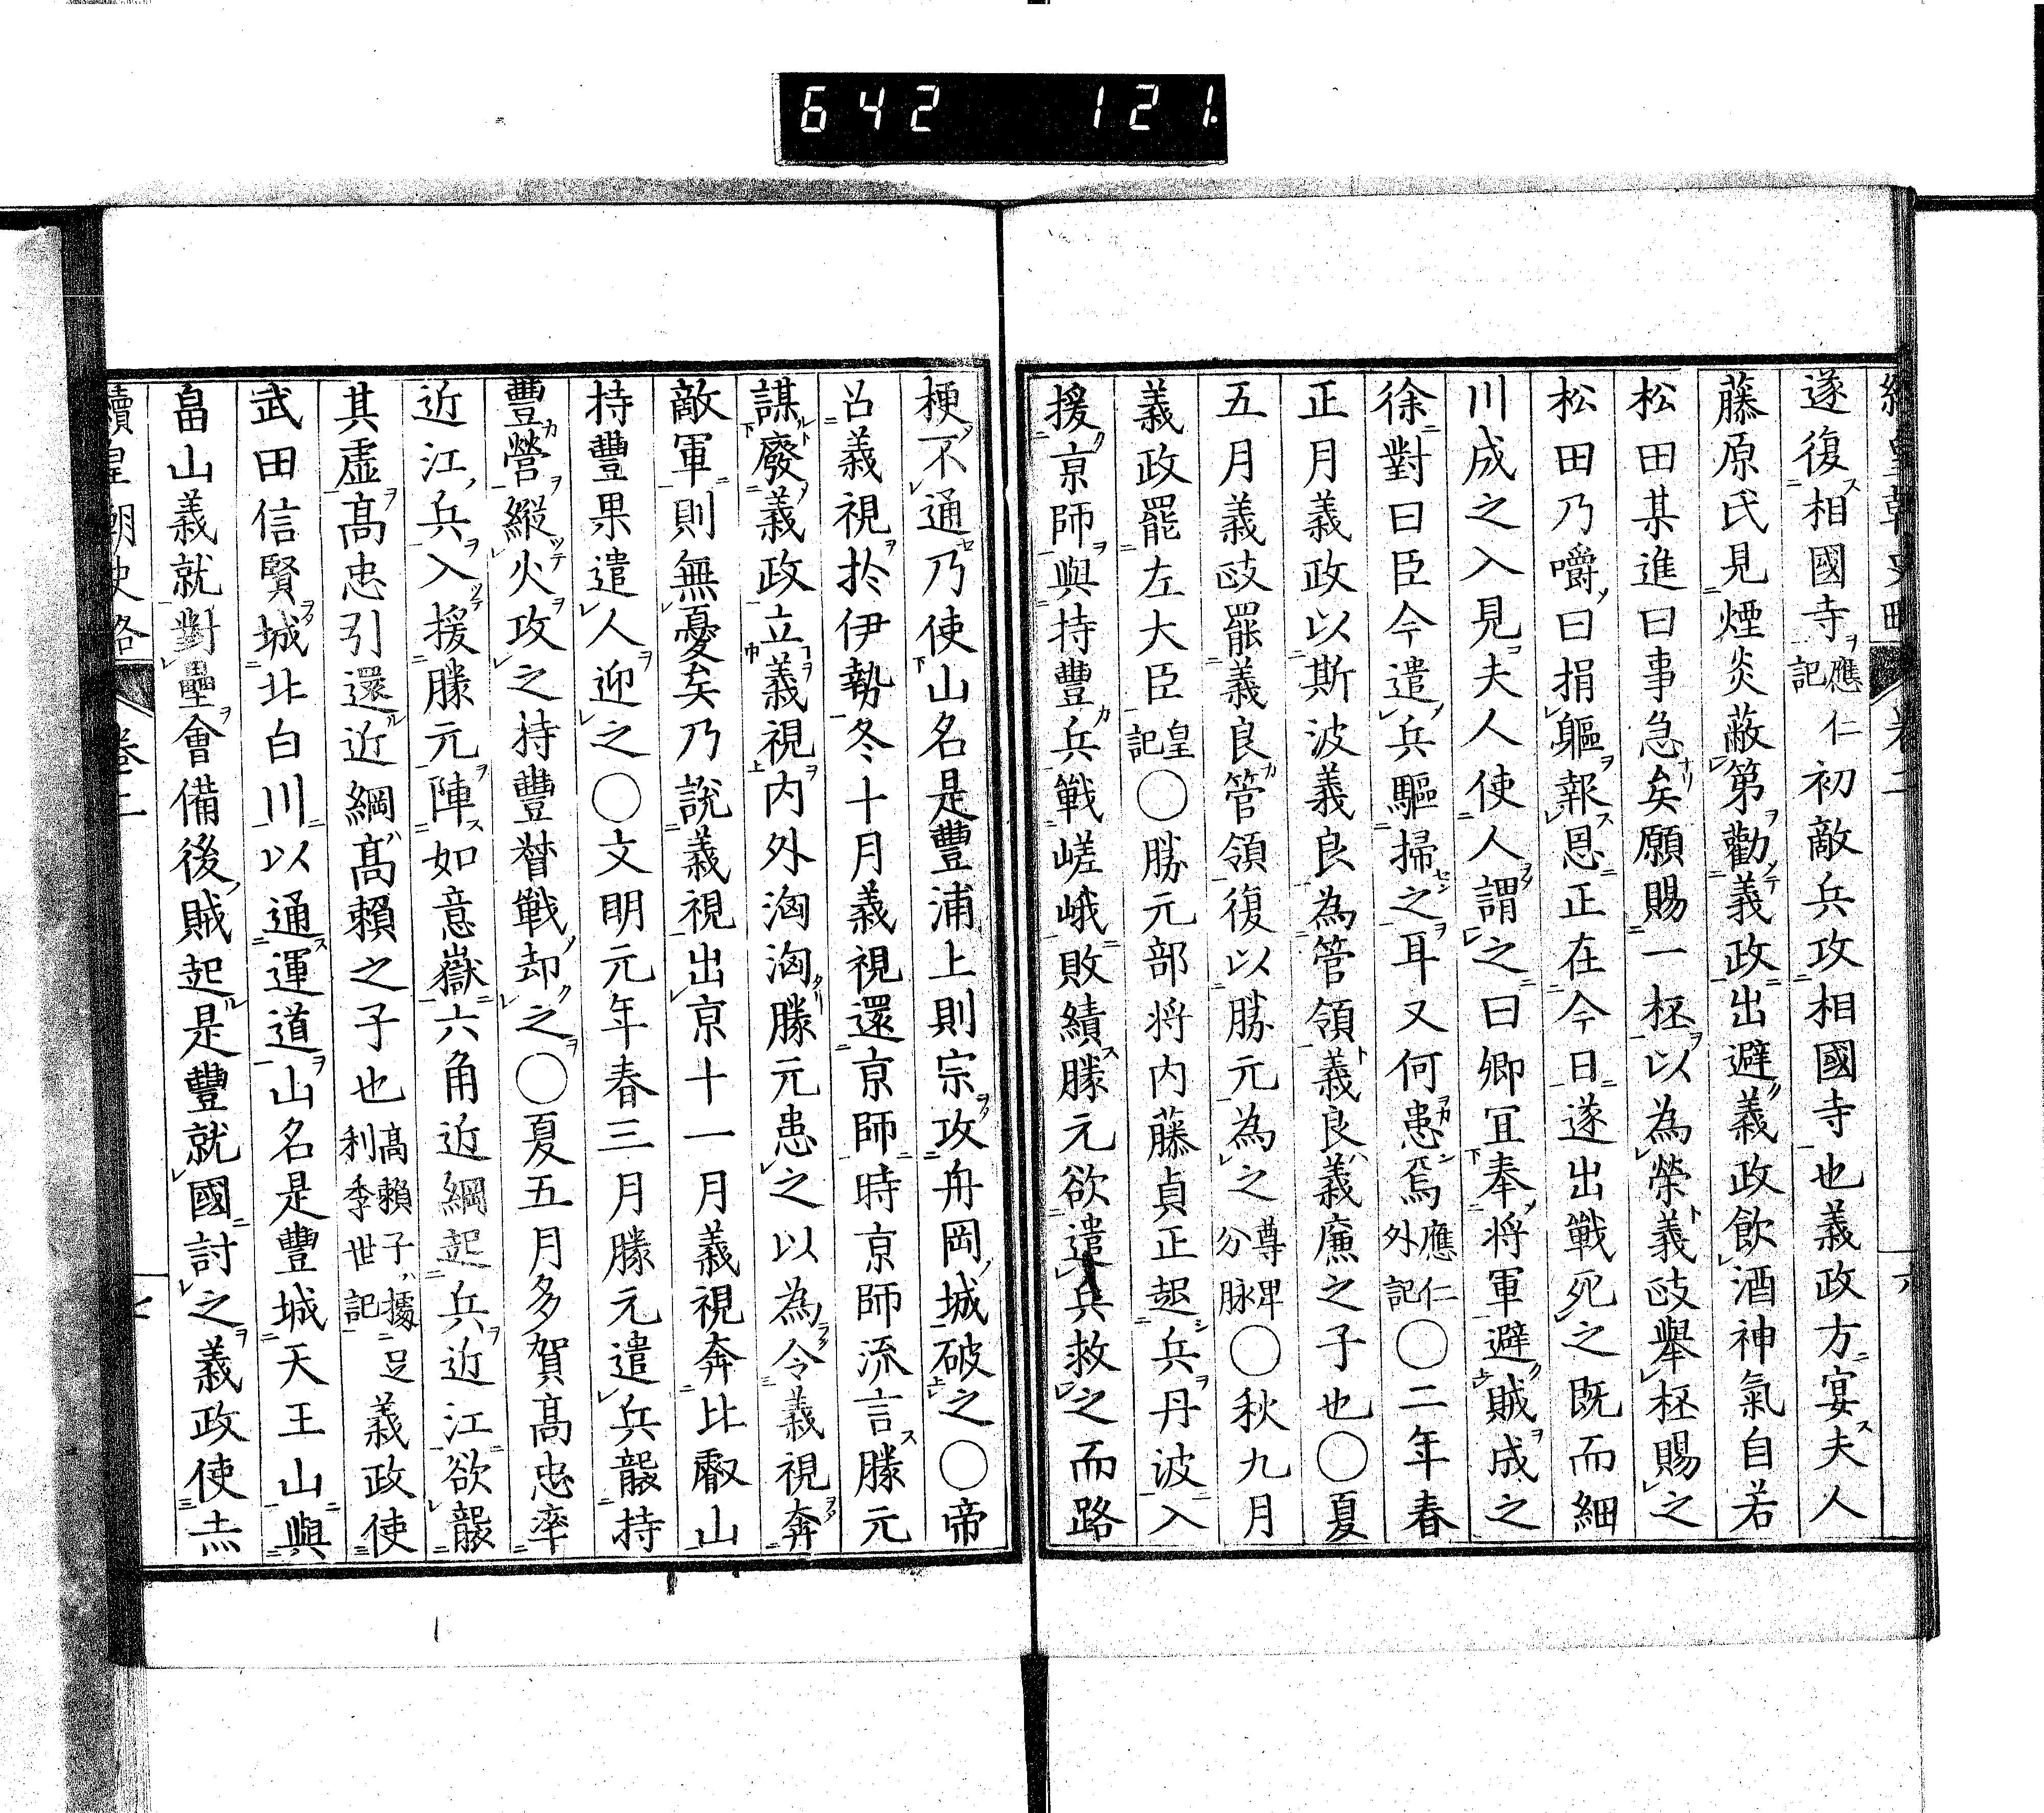 642 121
遂復相國寺應仁記初敵兵攻相國寺也義政方宴夫人
藤原氏見煙炎蔽第勸義政出避義政飲酒神氣自若
松田某進曰事急矣願賜一柸以為榮義政舉柸賜之
松田乃嚼曰捐軀報恩正在今日遂出戰死之既而細
川成之入見夫人使人謂之曰卿宜奉將軍避賊成之
徐對曰臣今遣兵驅掃之耳又何患焉應仁外記〇二年春
正月義政以斯波義良為管領義良義廉之子也〇夏
五月義政罷義良管領復以勝元為之尊卑分脉〇秋九月
義政罷左大臣皇記〇勝元部将内藤貞正起兵丹波入
援京師與持豐兵戰嵯峨敗績勝元欲遣兵救之而路
梗不通乃使山名是豐浦上則宗攻舟岡城破之〇帝
召義視於伊勢冬十月義視還京師時京師流言勝元
謀廢義政立義視内外洶洶勝元患之以為令義視奔
敵軍則無憂矣乃說義視出京十一月義視奔比叡山
持豐果遣人迎之〇文明元年春三月勝元遣兵襲持
豐營縱火攻之持豐督戰却之〇夏五月多賀高忠率
近江兵入援勝元陣如意嶽六角近綱起兵近江欲襲
其虛高忠引還近綱高賴之子也高賴子據足利季世記義政使
武田信賢城北白川以通運道山名是豐城天王山與
畠山義就對壘會備後賊起是豐就國討之義政使赤
續皇朝史略 卷二